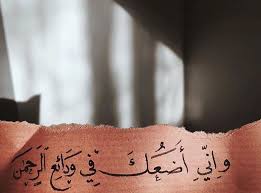 وَإِنِّي أَضَعُكَ فِي وَدَائِعِ الرَّحْمَٰنِ